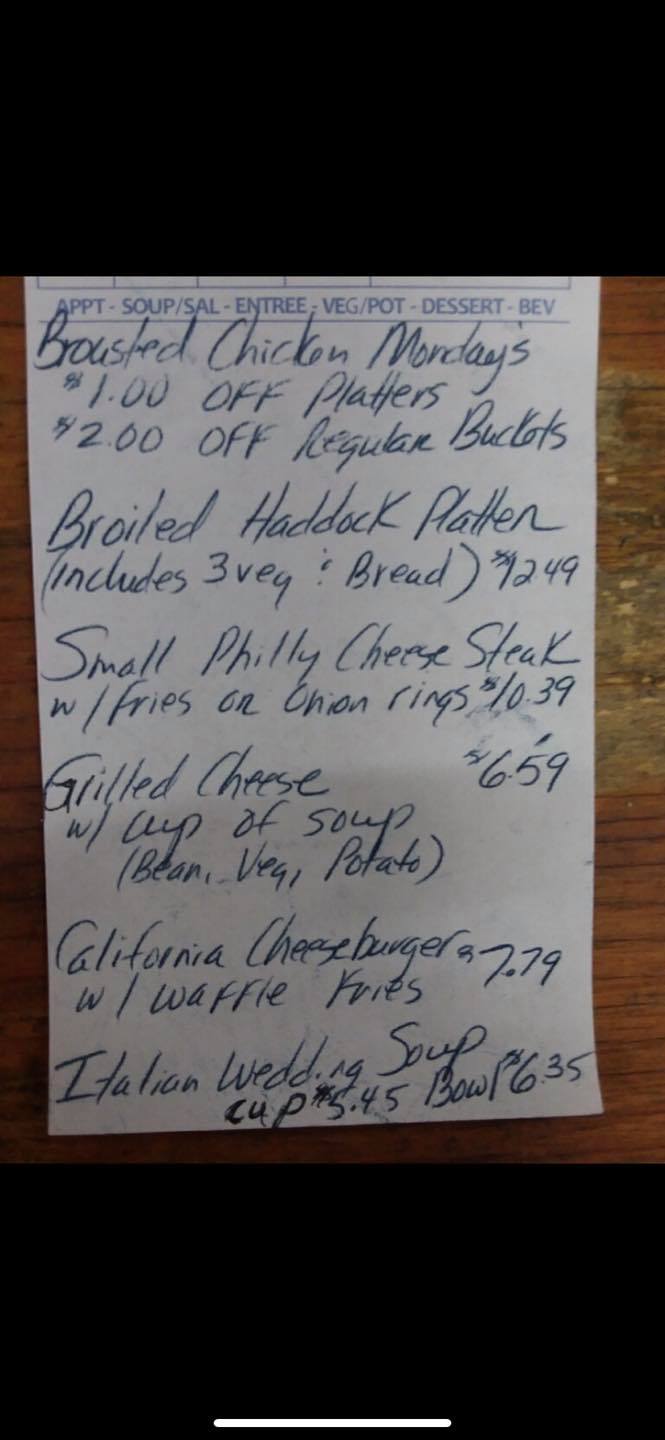 APPT - SOUP/SAL - ENTREE - VEG/POT - DESSERT - BEV
Broasted Chicken Monday's
$1.00 OFF Platters
$2.00 OFF Regular Buckets
Broiled Haddock Platter
(includes 3 veg & Bread) $12.49
Small Philly Cheese Steak
w/ Fries or Onion rings $10.39
Grilled Cheese $6.59
w/ cup of soup
(Bean, Veg, Potato)
California Cheeseburger $7.79
w/ waffle Fries
Italian Wedding Soup
cup $5.45 Bowl $6.35